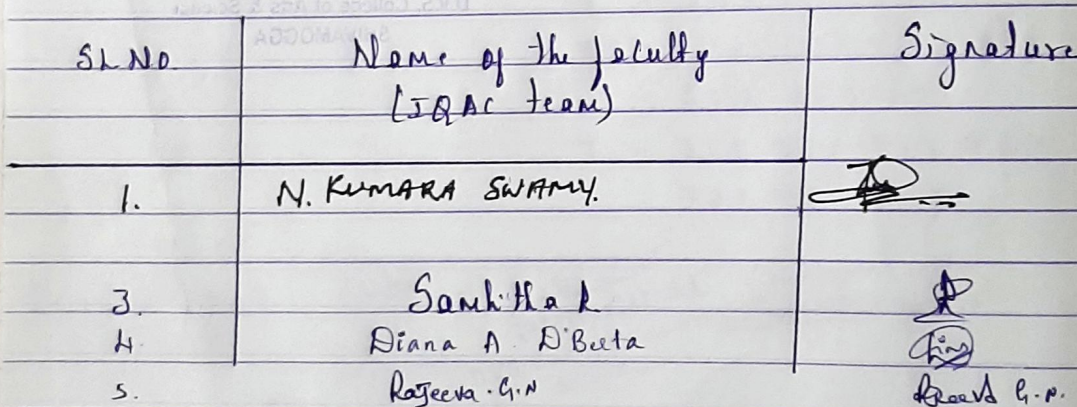 SL NO Name of the faculty Signature
(IQAC team)
1. N. KUMARA SWAMY.
3. Samhitha R
4. Diana A D'Beeta
5. Rajeeva. G.N Rajeeva G.N.